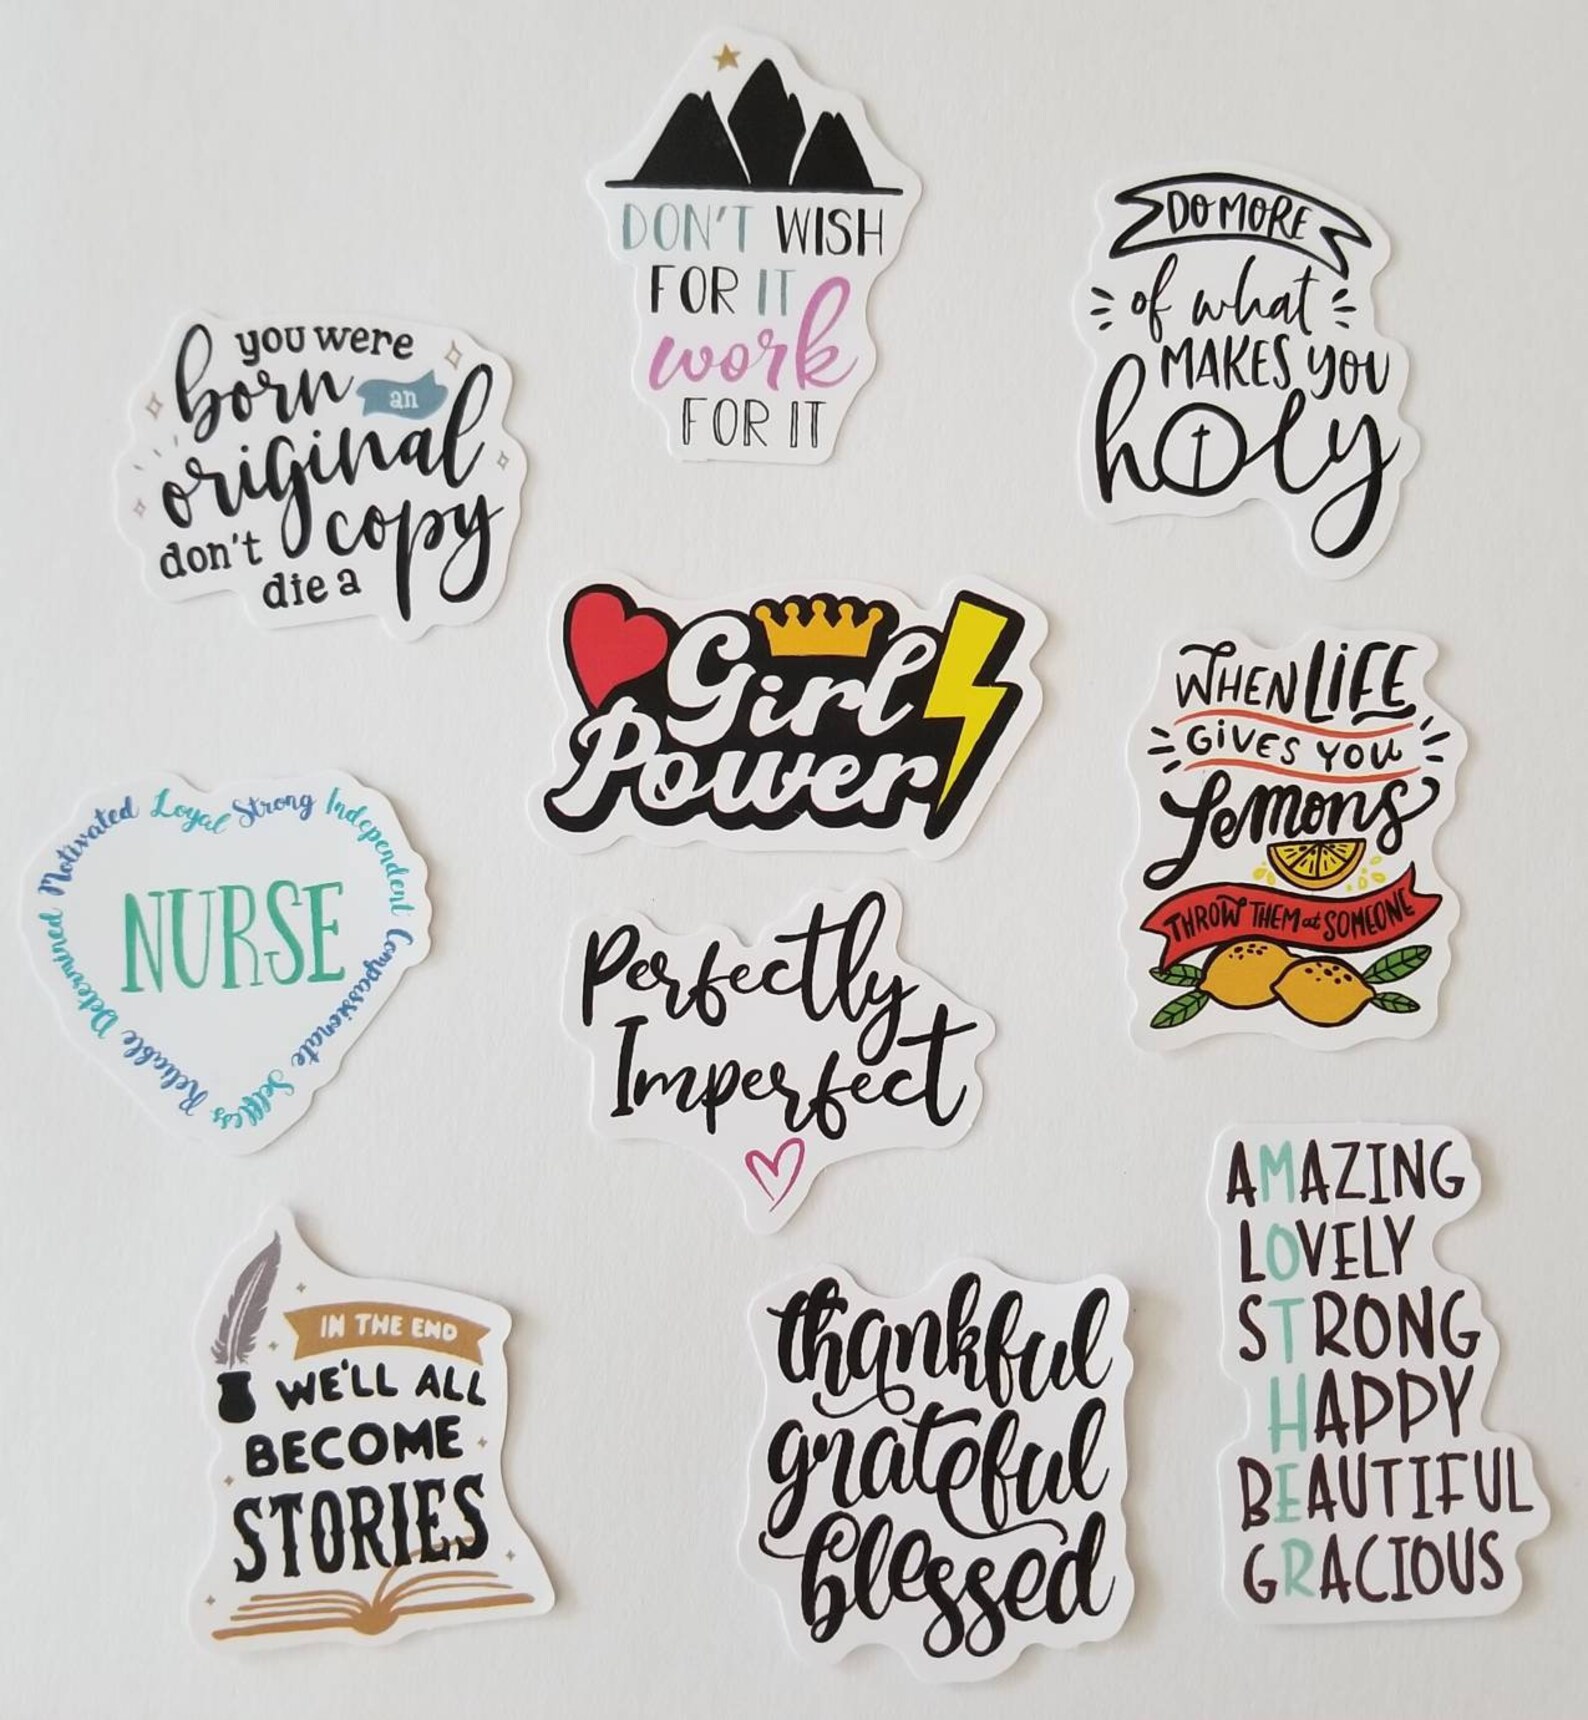 DON'T WISH
FOR IT
work
FOR IT
DO MORE
of what
MAKES YOU
holy
you were
born an
original
don't copy
die a
Girl
Power
WHEN LIFE
GIVES YOU
Lemons
THROW THEM at SOMEONE
Motivated Loyal Strong Independent Compassionate Selfless Reliable Determined
NURSE
Perfectly
Imperfect
AMAZING
LOVELY
STRONG
HAPPY
BEAUTIFUL
GRACIOUS
IN THE END
WE'LL ALL
BECOME
STORIES
thankful
grateful
blessed